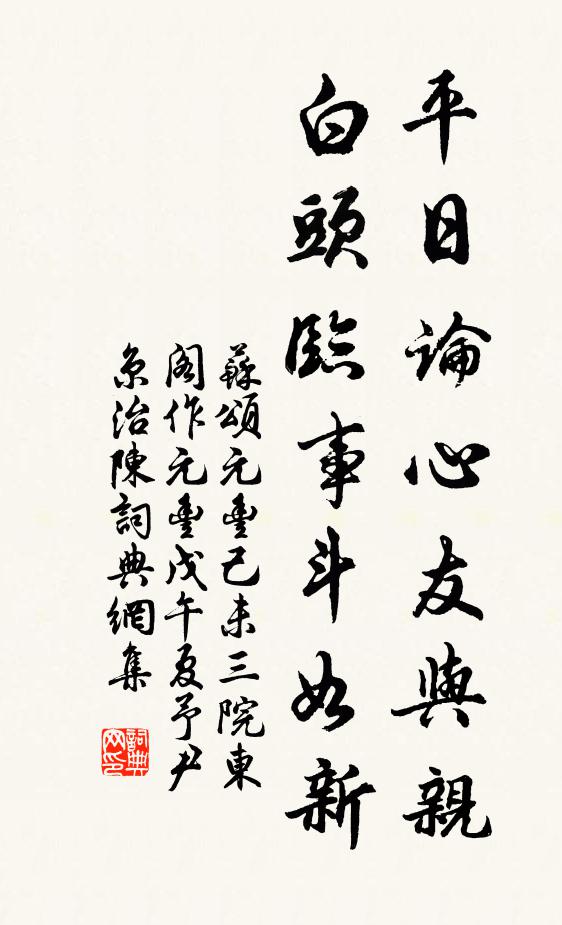 平日論心友與親
白頭臨事斗如新
蘇頌元豐己未三院東
閣作元豐戊午夏予尹
京治陳詞典網集
詞典
网印